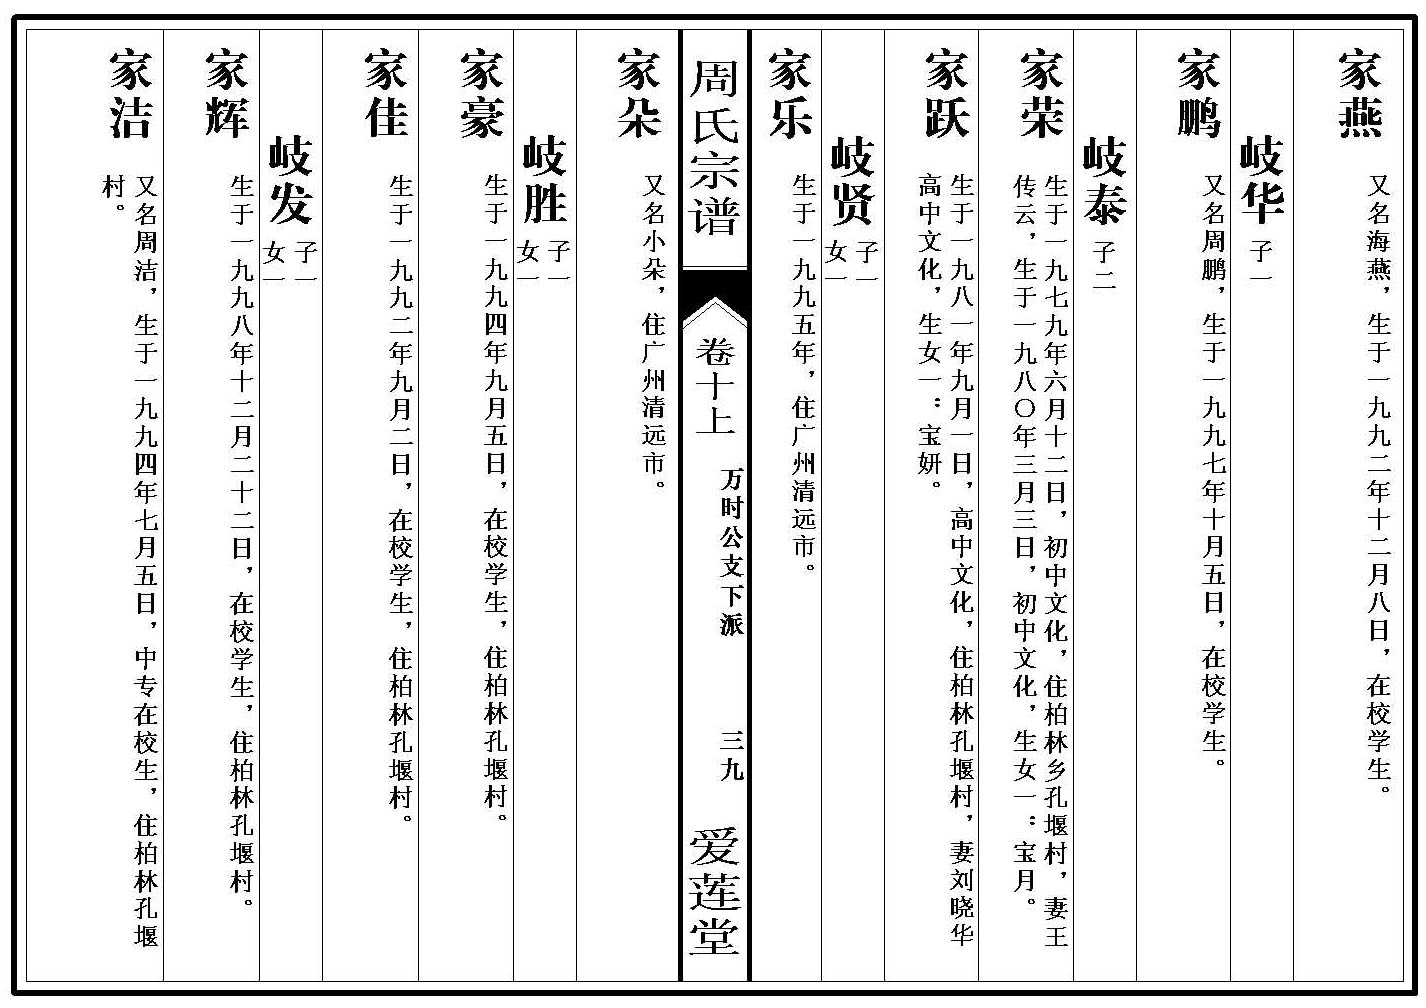 家燕
又名海燕，生于一九九二年十二月八日，在校学生。
岐华
子一
家鹏
又名周鹏，生于一九九七年十月五日，在校学生。
岐泰
子二
家荣
生于一九七九年六月十二日，初中文化，住柏林乡孔堰村，妻王
传云，生于一九八〇年三月三日，初中文化，生女一：宝月。
家跃
生于一九八一年九月一日，高中文化，住柏林孔堰村，妻刘晓华
高中文化，生女一：宝妍。
岐贤
子一
女一
家乐
生于一九九五年，住广州清远市。
周氏宗谱
卷十上
万时公支下派
三九
爱莲堂
家朵
又名小朵，住广州清远市。
岐胜
子一
女一
家豪
生于一九九四年九月五日，在校学生，住柏林孔堰村。
家佳
生于一九九二年九月二日，在校学生，住柏林孔堰村。
岐发
子一
女一
家辉
生于一九九八年十二月二十二日，在校学生，住柏林孔堰村。
家洁
又名周洁，生于一九九四年七月五日，中专在校生，住柏林孔堰
村。